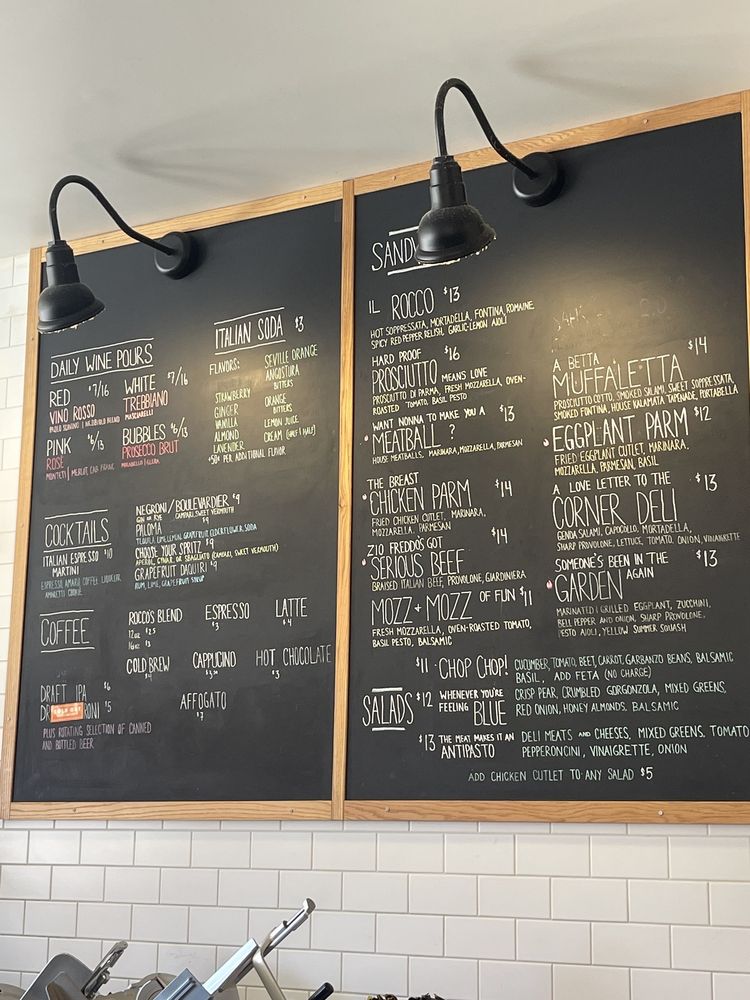 DAILY WINE POURS
RED $7/16
VINO ROSSO
WHITE $7/16
TREBBIANO
PINK $6/13
ROSÉ
BUBBLES $6/13
PROSECCO BRUT
ITALIAN SODA $3
FLAVORS:
STRAWBERRY
GINGER
VANILLA
ALMOND
LAVENDER
SEVILLE ORANGE
ANGOSTURA
BITTERS
ORANGE
BITTERS
LEMON JUICE
CREAM (HALF & HALF)
+50¢ PER ADDITIONAL FLAVOR
COCKTAILS
ITALIAN ESPRESSO $10
MARTINI
ESPRESSO, AMARO, COFFEE LIQUEUR,
AMARETTI COOKIE
NEGRONI/BOULEVARDIER $9
GIN OR RYE CAMPARI, SWEET VERMOUTH
PALOMA $9
TEQUILA, LIME, LEMON, GRAPEFRUIT, ELDERFLOWER, SODA
CHOOSE YOUR SPRITZ $9
APEROL, CYNAR OR SBAGLIATO (CAMPARI, SWEET VERMOUTH)
GRAPEFRUIT DAQUIRI $9
RUM, LIME, GRAPEFRUIT SYRUP
COFFEE
ROCCO'S BLEND
12oz $2.5
16oz $3
ESPRESSO
$3
LATTE
$4
COLD BREW
$4
CAPPUCINO
HOT CHOCOLATE
$3
AFFOGATO
$7
DRAFT IPA $6
RONI $5
PLUS ROTATING SELECTION OF CANNED
AND BOTTLED BEER
SANDW
IL ROCCO $13
HOT SOPPRESSATA, MORTADELLA, FONTINA, ROMAINE
SPICY RED PEPPER RELISH, GARLIC-LEMON AIOLI
HARD PROOF $16
PROSCIUTTO MEANS LOVE
PROSCIUTTO DI PARMA, FRESH MOZZARELLA, OVEN-
ROASTED TOMATO, BASIL PESTO
WANT NONNA TO MAKE YOU A $13
MEATBALL ?
HOUSE MEATBALLS, MARINARA, MOZZARELLA, PARMESAN
THE BREAST
CHICKEN PARM $14
FRIED CHICKEN CUTLET, MARINARA,
MOZZARELLA, PARMESAN
ZIO FREDDO'S GOT $14
SERIOUS BEEF
BRAISED ITALIAN BEEF, PROVOLONE, GIARDINIERA
MOZZ + MOZZ OF FUN $11
FRESH MOZZARELLA, OVEN-ROASTED TOMATO,
BASIL PESTO, BALSAMIC
A BETTA $14
MUFFALETTA
PROSCIUTTO COTTO, SMOKED SALAMI, SWEET SOPPRESSATA,
SMOKED FONTINA, HOUSE KALAMATA TAPENADE, PORTABELLA
EGGPLANT PARM $12
FRIED EGGPLANT CUTLET, MARINARA,
MOZZARELLA, PARMESAN, BASIL
A LOVE LETTER TO THE $13
CORNER DELI
GENOA SALAMI, CAPOCOLLO, MORTADELLA,
SHARP PROVOLONE, LETTUCE, TOMATO, ONION, VINAIGRETTE
SOMEONE'S BEEN IN THE $13
GARDEN AGAIN
MARINATED & GRILLED EGGPLANT, ZUCCHINI,
BELL PEPPER AND ONION, SHARP PROVOLONE,
PESTO AIOLI, YELLOW SUMMER SQUASH
SALADS
$11 · CHOP CHOP! CUCUMBER, TOMATO, BEET, CARROT, GARBANZO BEANS, BALSAMIC
BASIL, ADD FETA (NO CHARGE)
$12 WHENEVER YOU'RE
FEELING BLUE
CRISP PEAR, CRUMBLED GORGONZOLA, MIXED GREENS,
RED ONION, HONEY ALMONDS, BALSAMIC
$13 THE MEAT MAKES IT AN
ANTIPASTO
DELI MEATS AND CHEESES, MIXED GREENS, TOMATO
PEPPERONCINI, VINAIGRETTE, ONION
ADD CHICKEN CUTLET TO ANY SALAD $5